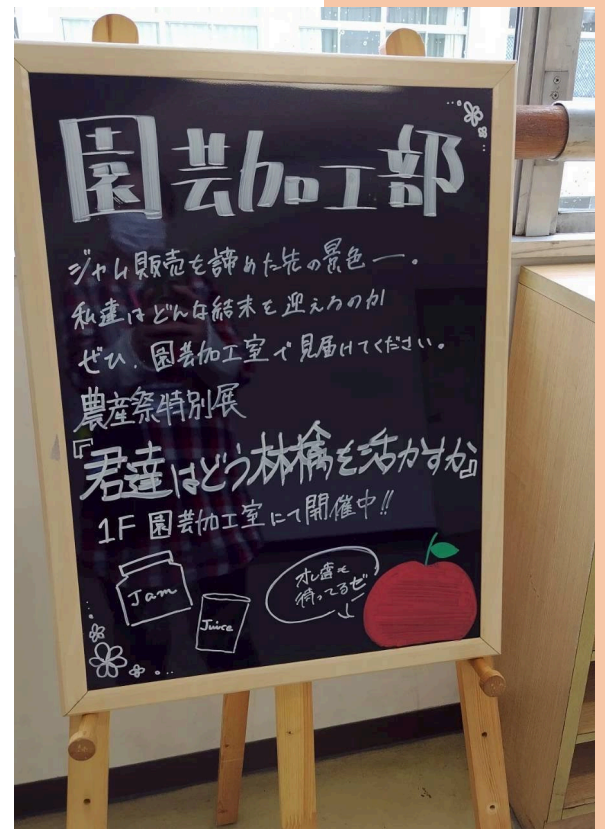 園芸加工部
ジャム販売を諦めた先の景色―。
私達はどんな結末を迎えるのか
ぜひ、園芸加工室で見届けてください。
農産祭特別展
『君達はどう林檎を活かすか』
1F 園芸加工室にて開催中!!
Jam
Juice
オレ達も
待ってるぜ